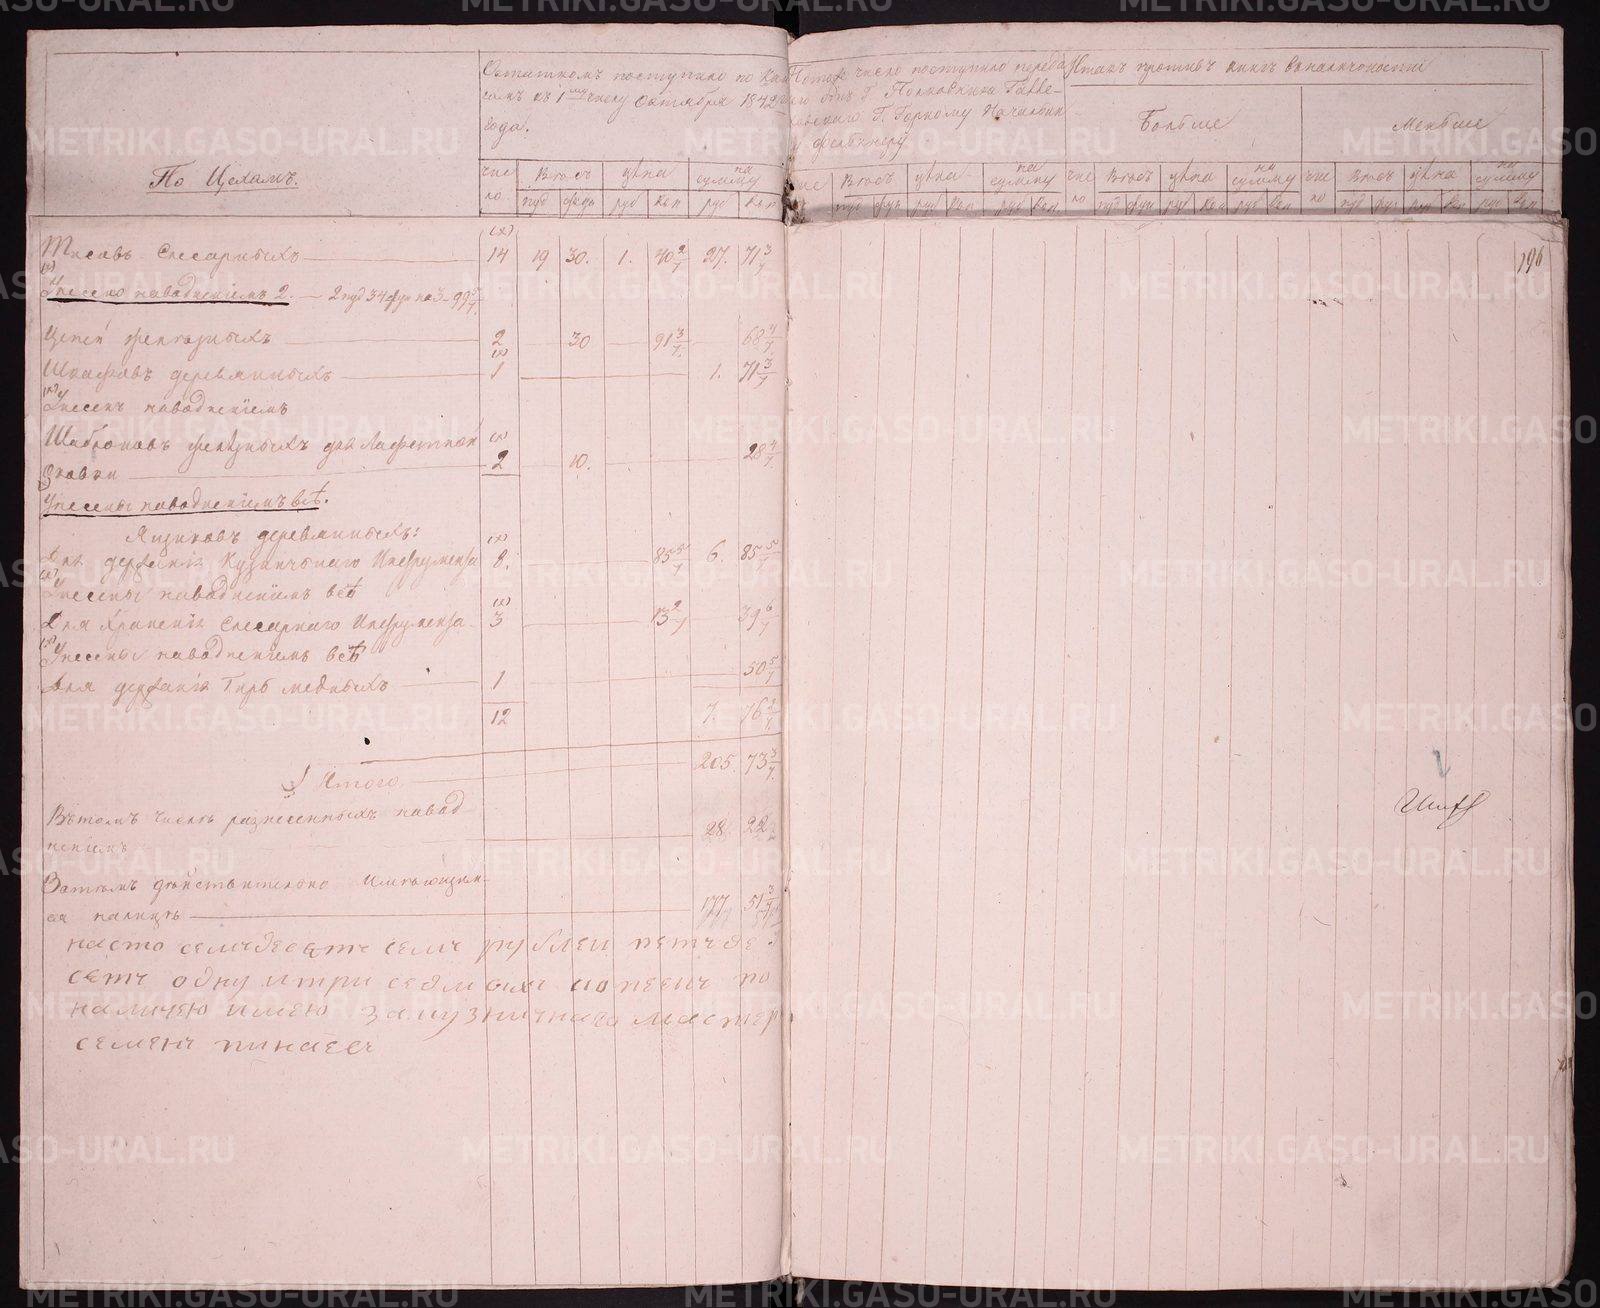 По Цехамъ.
Остаткомъ поступило по кни
гамъ къ 1му числу Октября 1842
года.
число поступило переда
отъ Г. Полковника
Г. Горному Началь
Фелькнеру
Итакъ противъ книгъ въ наличности
Больше
Меньше
чис
ло
Вѣсъ
цѣна
на сумму
Вѣсъ
цѣна
на сумму
чис
ло
Вѣсъ
цѣна
на сумму
чис
ло
Вѣсъ
цѣна
на сумму
пуд
руб
коп
руб
коп
196
(х)
Тисовъ Слесарныхъ 14 19 30. 1. 40 2/7 27. 71 3/7
(х) Унесено наводнениемъ 2. — 2 пуд 34 фун на 3 – 99
Цепей железныхъ 2 30 91 3/7 68 4/7
(х)
Шкафовъ деревянныхъ 1 1. 71 3/7
(х) Унесенъ наводнениемъ
Шаблоновъ желѣзныхъ для Лафетной (х)
Оковки 2 10. 28 4/7
Унесены наводнениемъ всѣ.
Ящиковъ деревянныхъ: (х)
Для держанія Кузничьнаго Инструмента 8. 85 5/7 6. 85 5/7
(х) Унесены наводнениемъ всѣ
(х)
Для Храненія Слесарнаго Инструмента 3 13 2/7 39 6/7
(х) Унесены наводнениемъ всѣ
Для держанія Гирь медныхъ 1 50 5/7
12 7. 76 2/7
Итого 205. 73 3/7
Вътомъ числѣ разнесенныхъ навод
нениемъ 28 22
Затемъ действительно имеющих
ся налицъ 177 51 3/7
насто семъдесетъ семъ рублеи петъде
сетъ одну итри седмыхъ копеекъ по
наличею имею закузничнаго мастер
семенъ пинаеечъ